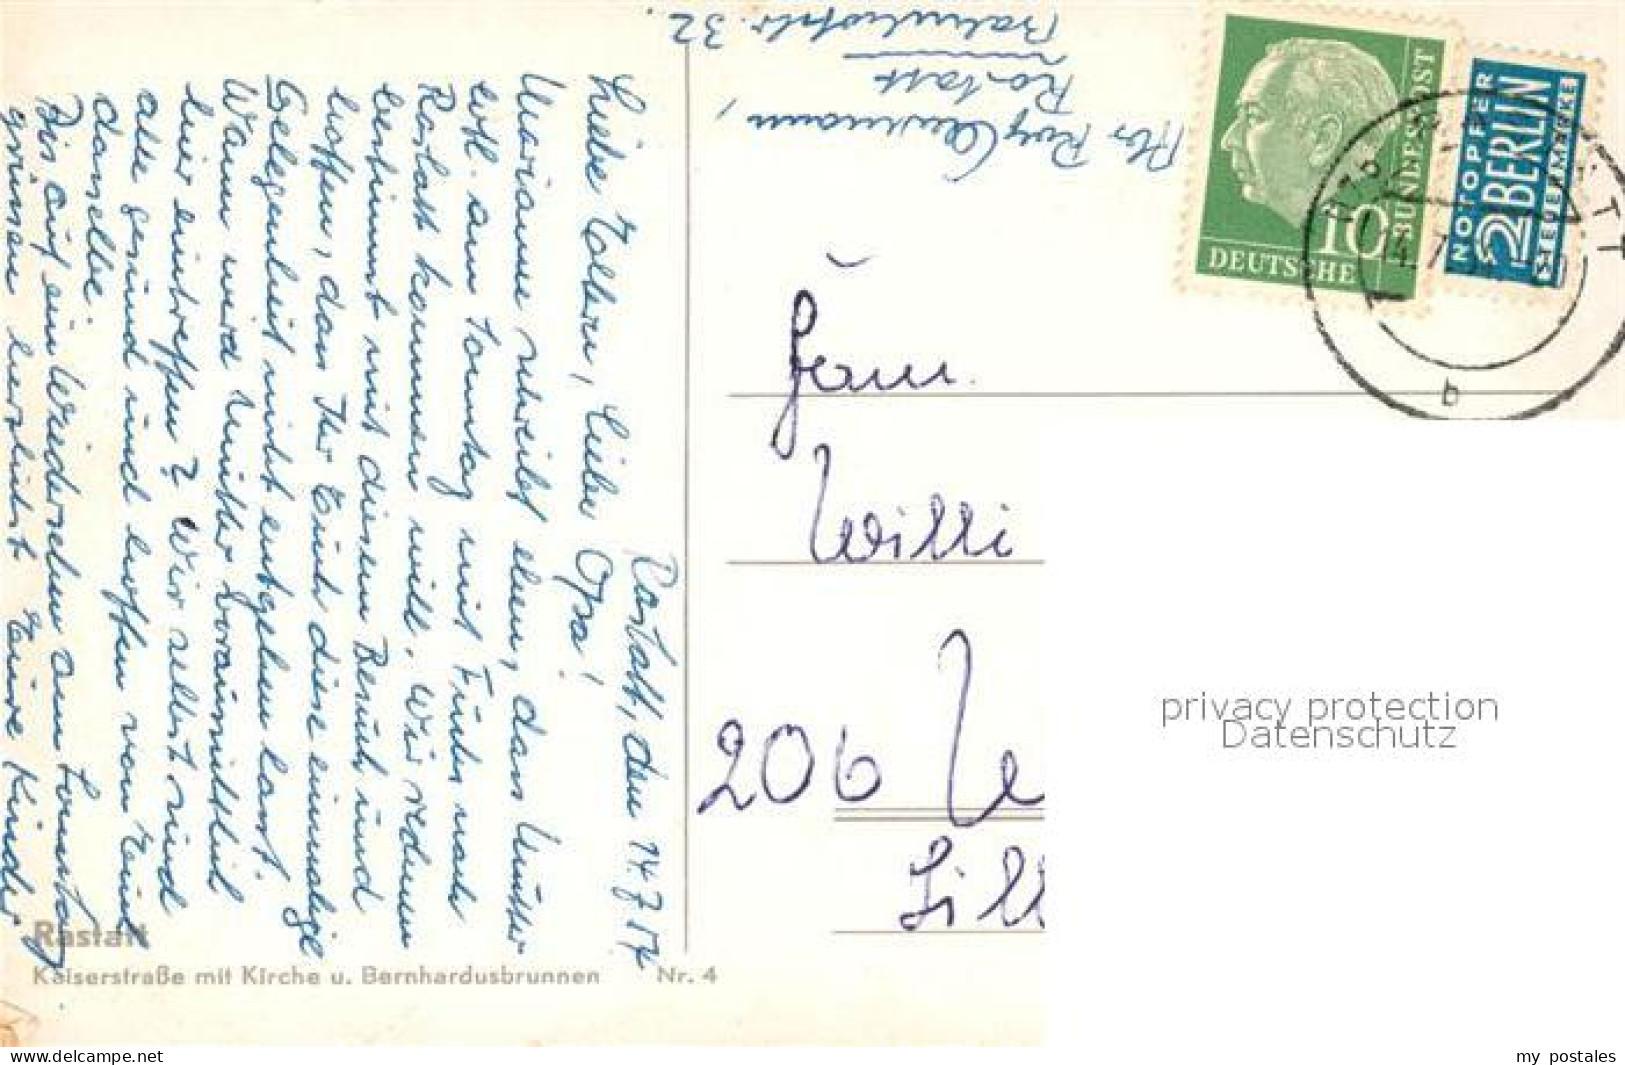 Rastatt, den 14.7.54
Liebe Eltern, lieber Opa!
Marianne schreibt eben, dass Mutter
evtl. am Sonntag mit Fuchs nach
Rastatt kommen will. Wir rechnen
bestimmt mit diesem Besuch und
hoffen, dass Ihr Euch diese einmalige
Gelegenheit nicht entgehen lasst.
Wann wird Mutter voraussichtlich
hier eintreffen? Wir selbst sind
alle gesund und hoffen von Euch
dasselbe.
Bis auf ein Wiedersehen am Sonntag
grüssen herzlichst Eure Kinder
Abs.
Rastatt
Bahnhofstr. 32.
Fam.
Willi
206
DEUTSCHE BUNDESPOST
10
NOTOPFER
2 BERLIN
STEUERMARKE
b
Rastatt
Kaiserstraße mit Kirche u. Bernhardusbrunnen Nr. 4
privacy protection
Datenschutz
www.delcampe.net
my postales